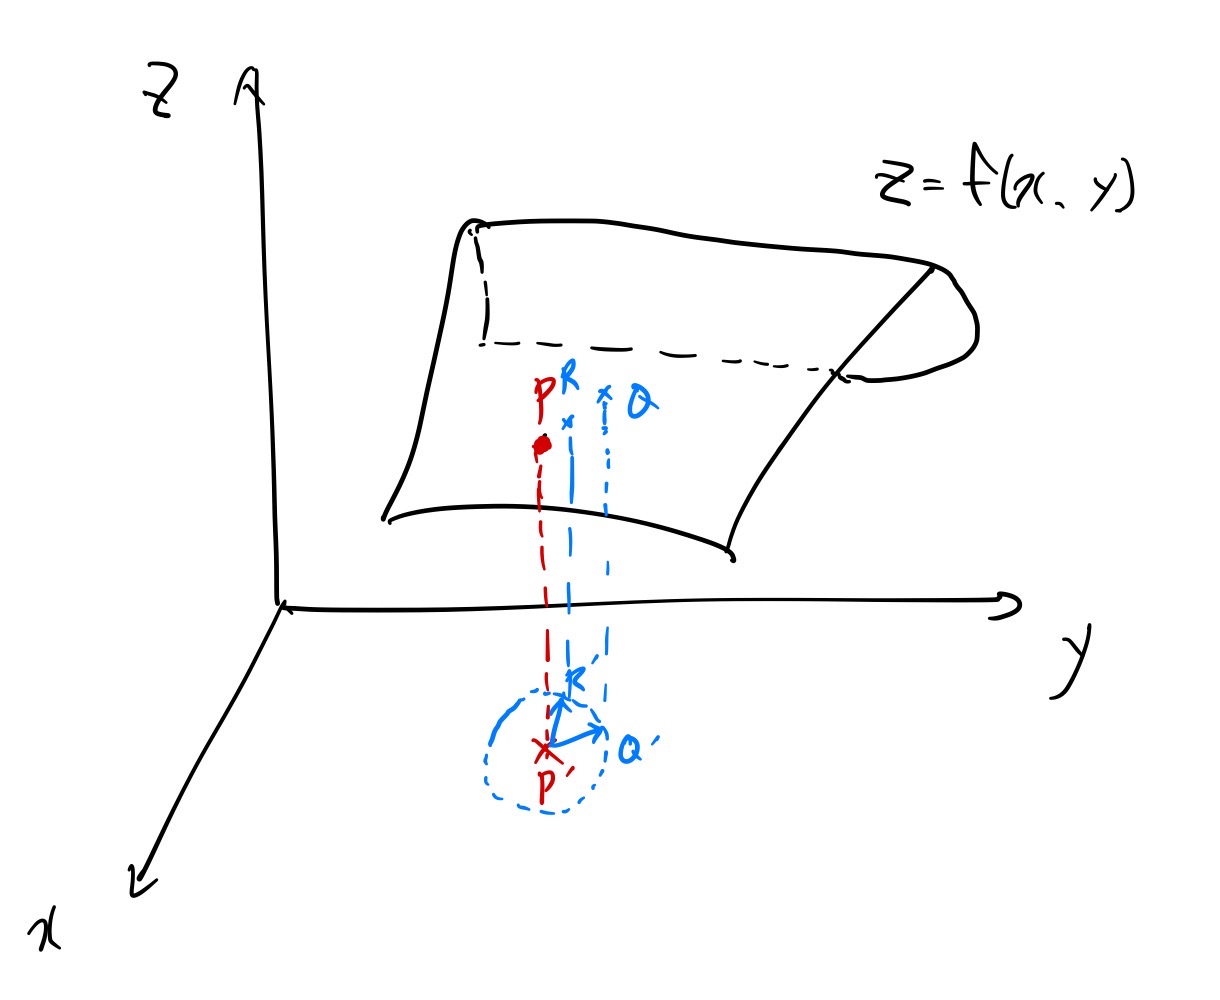 z
z = f(x, y)
P
R
Q
y
R'
Q'
P'
x